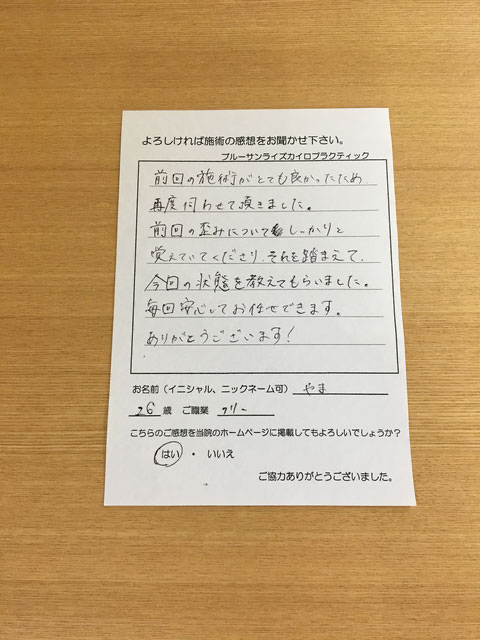 よろしければ施術の感想をお聞かせ下さい。
ブルーサンライズカイロプラクティック
前回の施術がとても良かったため
再度伺わせて頂きました。
前回の歪みについてしっかりと
覚えていてくださり、それを踏まえて、
今回の状態を教えてもらいました。
毎回安心してお任せできます。
ありがとうございます!
お名前(イニシャル、ニックネーム可) やま
26 歳 ご職業 フリー
こちらのご感想を当院のホームページに掲載してもよろしいでしょうか?
はい ・ いいえ
ご協力ありがとうございました。